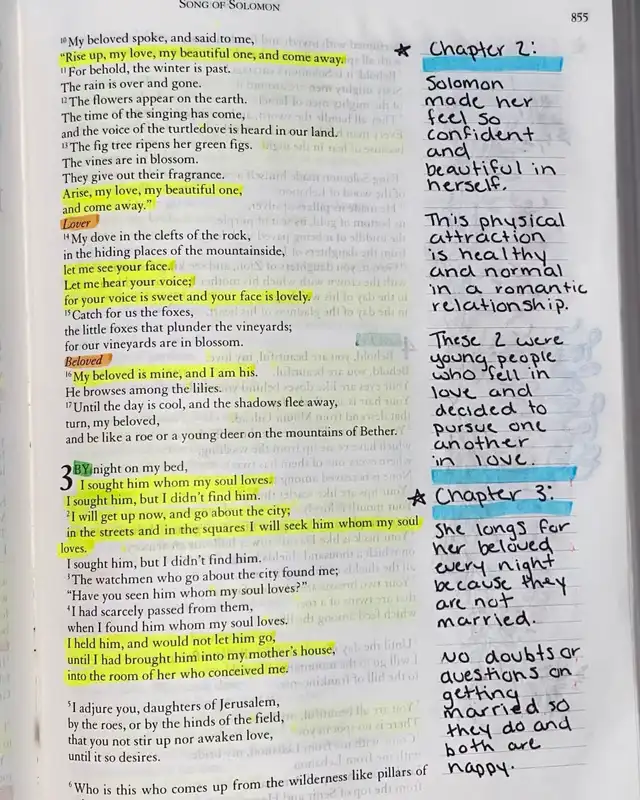 SONG OF SOLOMON
855
10 My beloved spoke, and said to me,
“Rise up, my love, my beautiful one, and come away.
11 For behold, the winter is past.
The rain is over and gone.
12 The flowers appear on the earth.
The time of the singing has come,
and the voice of the turtledove is heard in our land.
13 The fig tree ripens her green figs.
The vines are in blossom.
They give out their fragrance.
Arise, my love, my beautiful one,
and come away.”
Lover
14 My dove in the clefts of the rock,
in the hiding places of the mountainside,
let me see your face.
Let me hear your voice;
for your voice is sweet and your face is lovely.
15 Catch for us the foxes,
the little foxes that plunder the vineyards;
for our vineyards are in blossom.
Beloved
16 My beloved is mine, and I am his.
He browses among the lilies.
17 Until the day is cool, and the shadows flee away,
turn, my beloved,
and be like a roe or a young deer on the mountains of Bether.
3 BY night on my bed,
I sought him whom my soul loves.
I sought him, but I didn’t find him.
2 I will get up now, and go about the city;
in the streets and in the squares I will seek him whom my soul
loves.
I sought him, but I didn’t find him.
3 The watchmen who go about the city found me;
“Have you seen him whom my soul loves?”
4 I had scarcely passed from them,
when I found him whom my soul loves.
I held him, and would not let him go,
until I had brought him into my mother’s house,
into the room of her who conceived me.
5 I adjure you, daughters of Jerusalem,
by the roes, or by the hinds of the field,
that you not stir up nor awaken love,
until it so desires.
6 Who is this who comes up from the wilderness like pillars of
Chapter 2:
Solomon
made her
feel so
confident
and
beautiful in
herself.
This physical
attraction
is healthy
and normal
in a romantic
relationship.
These 2 were
young people
who fell in
love and
decided to
pursue one
another
in love.
Chapter 3:
She longs for
her beloved
every night
because they
are not
married.
No doubts or
questions on
getting
married so
they do and
both are
happy.